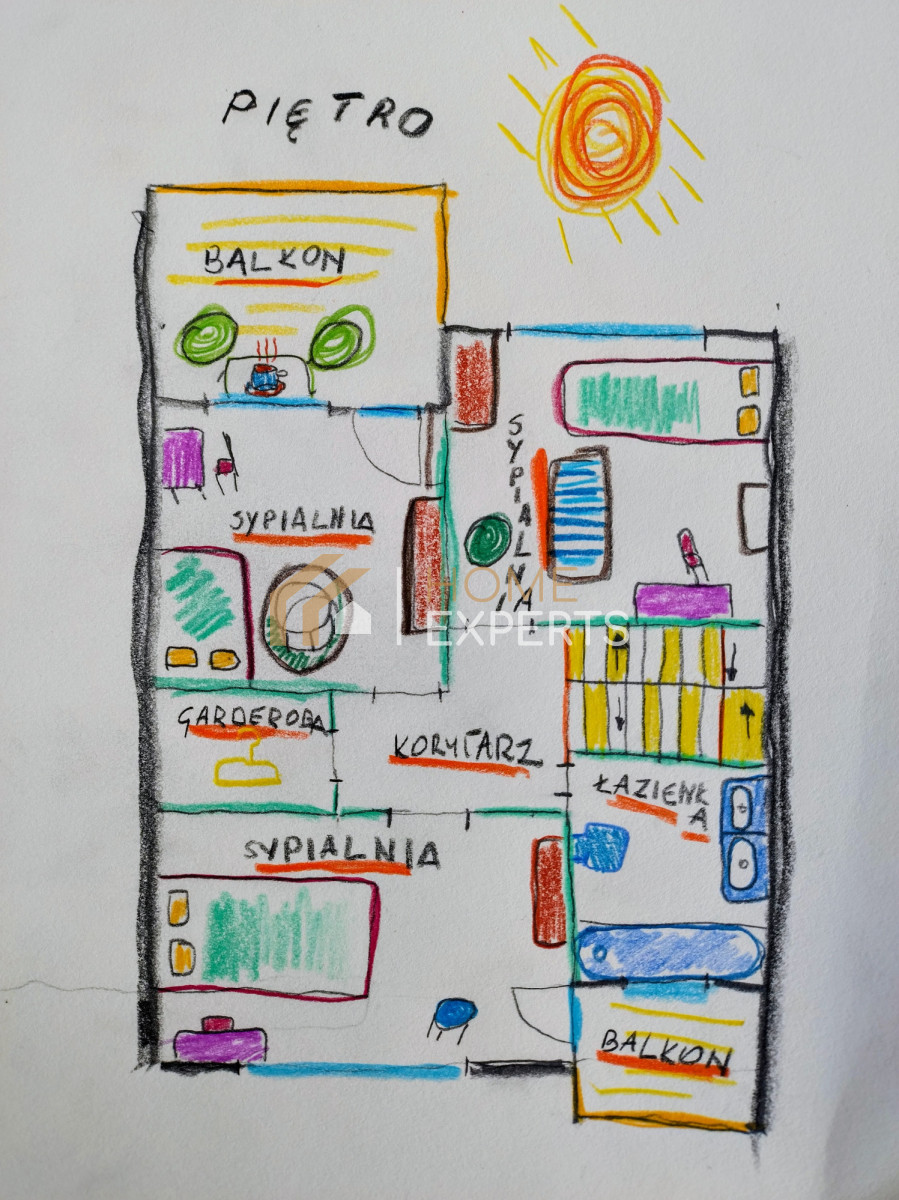 PIĘTRO
BALKON
SYPIALNIA
SYPIALNIA
HOME
EXPERTS
GARDEROBA
KORYTARZ
ŁAZIENK
A
SYPIALNIA
BALKON